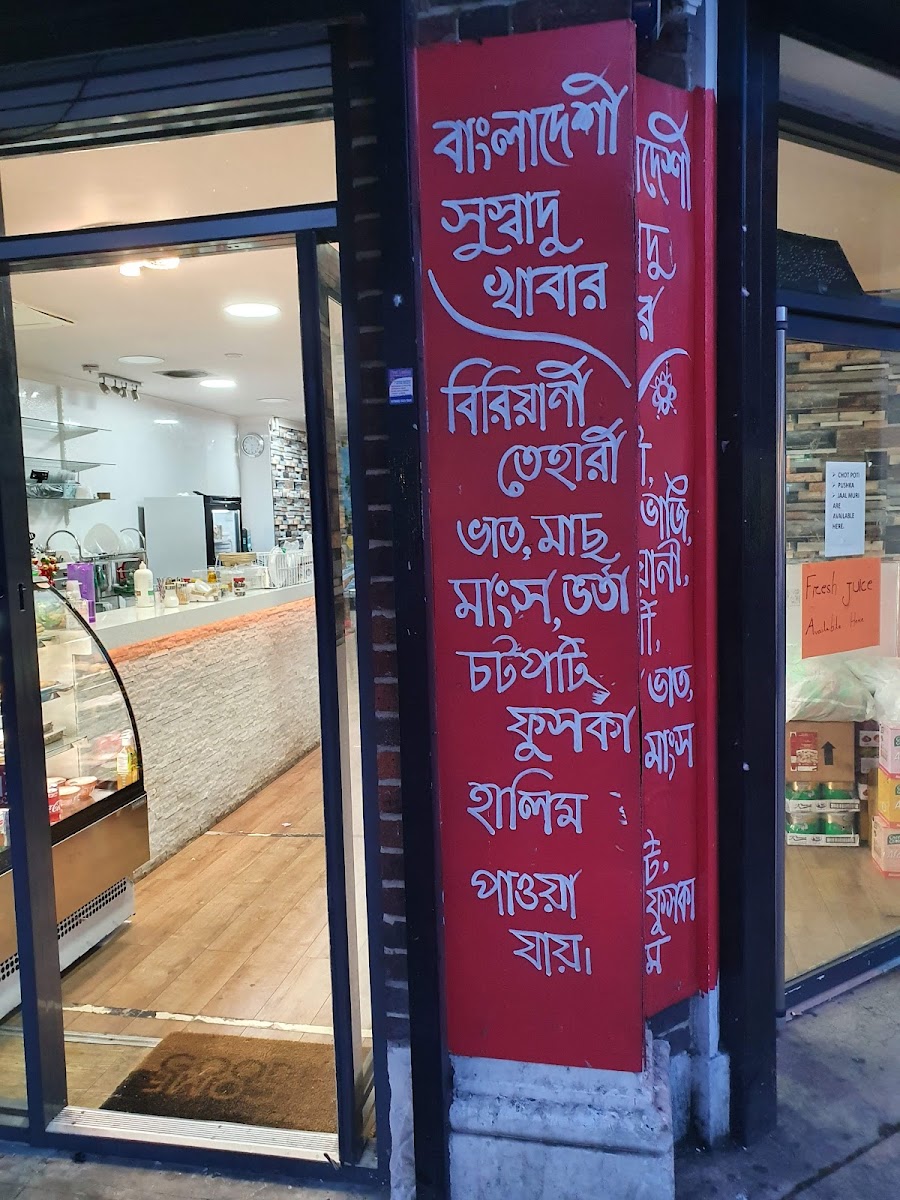 বাংলাদেশী
সুস্বাদু
খাবার
বিরিয়ানী
তেহারী
ভাত, মাছ
মাংস, ভর্তা
চটপটি
ফুসকা
হালিম
পাওয়া
যায়।
ভাজি,
ভাত,
মাংস
ফুসকা
CHOT POTI
PUSHKA
JAAL MURI
ARE
AVAILABLE
HERE.
Fresh juice
Available Here